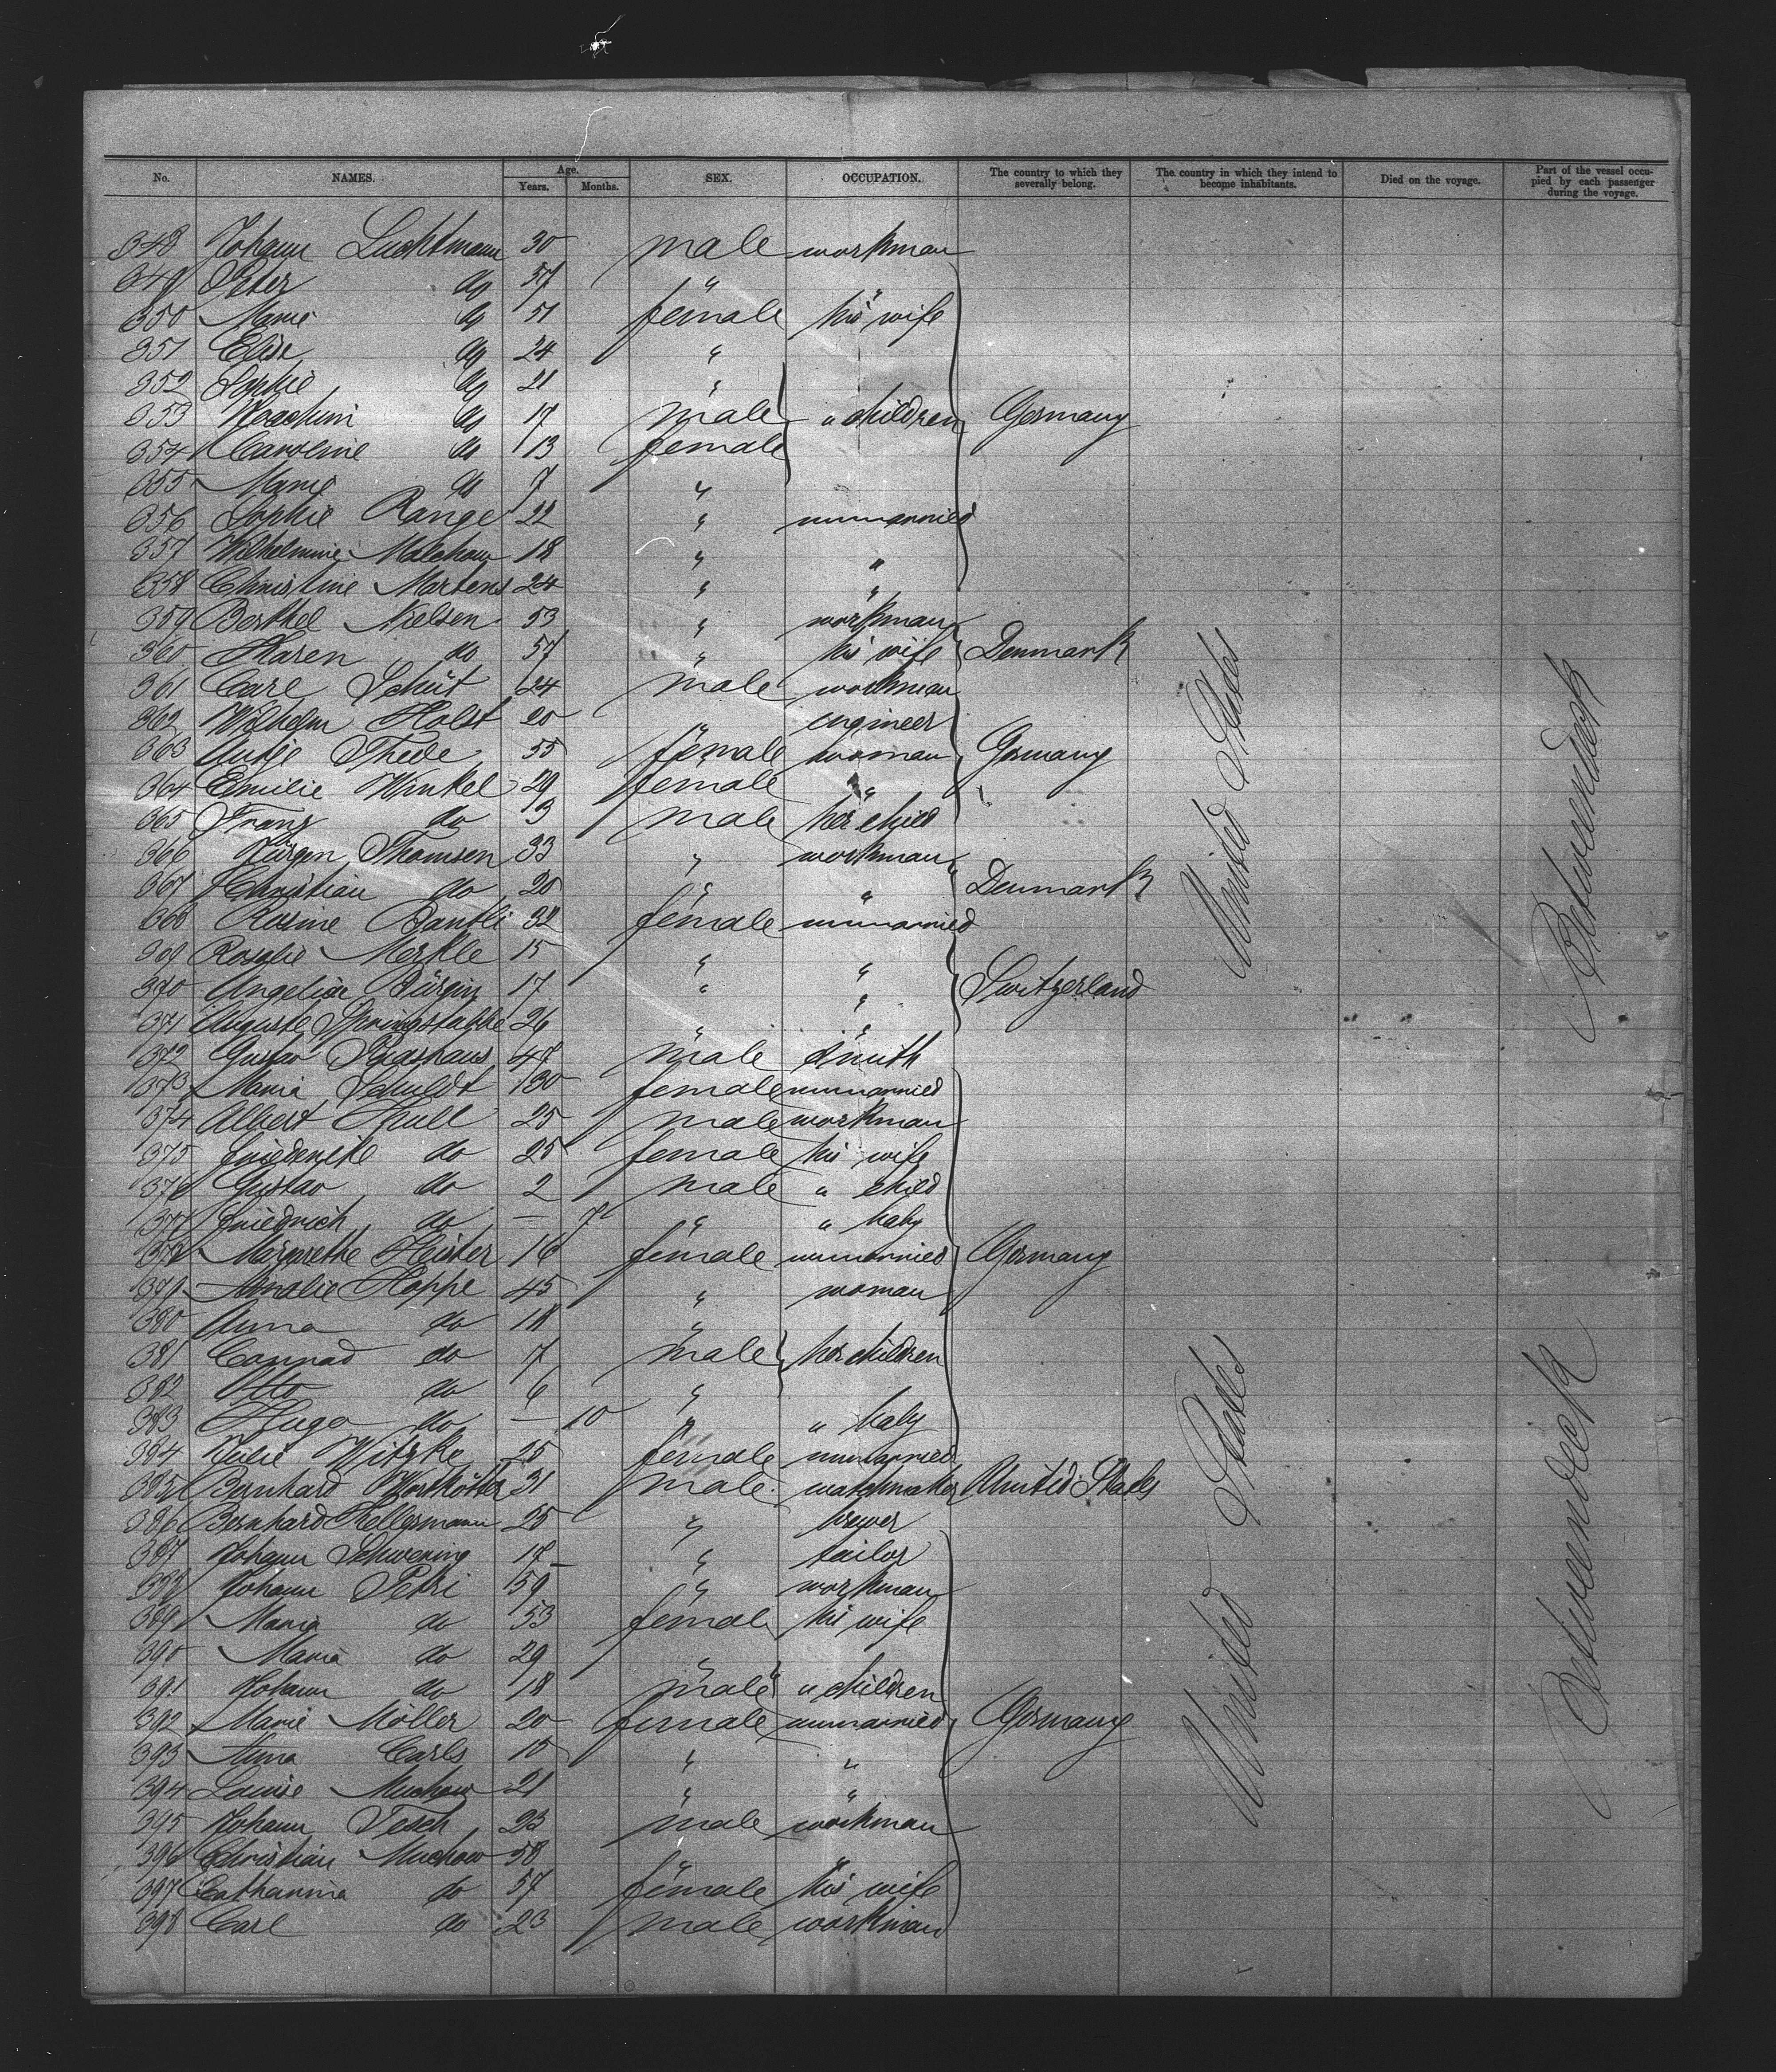 No. NAMES. Age. Years. Months. SEX. OCCUPATION. The country to which they severally belong. The country in which they intend to become inhabitants. Died on the voyage. Part of the vessel occupied by each passenger during the voyage.
348 Johann Luchtmann 30 male workman
349 Peter do 57 " "
350 Marie do 51 female his wife
351 Elise do 24 "
352 Sophie do 21 "
353 Joachim do 17 male " children Germany
354 Caroline do 13 female
355 Marie do 7 "
356 Sophie Range 22 " unmarried
357 Wilhelmine Malchow 18 " "
358 Christine Martens 24 " "
359 Berthel Nielsen 53 " workman
360 Karen do 57 " his wife Denmark
361 Carl Schüt 24 male workman
362 Wilhelm Holst 20 " engineer
363 Antje Thede 55 female woman Germany
364 Emilie Winkel 29 female "
365 Franz do 3 male her child
366 Jürgen Thomsen 33 " workman
367 Christian do 20 " " Denmark
368 Rosine Bantli 32 female unmarried
369 Rosalie Merkle 15 " "
370 Angelica Bürgin 17 " " Switzerland
371 Auguste 26 " "
372 Gustav 47 male smith
373 Maria Schuldt 30 female unmarried
374 Albert Krull 25 male workman
375 Friederike do 25 female his wife
376 Gustav do 2 male " child
377 Friedrich do — 7 " " baby
378 Margrethe Heister 16 female unmarried Germany
379 Amalie Hoppe 45 " woman
380 Anna do 18 "
381 Conrad do 7 male her children
382 Otto do 6 "
383 Hugo do — 10 " " baby
384 Julie Witzke 25 female unmarried
385 Bernhard 31 male watchmaker United States
386 Bernhard Kellermann 25 " brewer
387 Johann Schwening 17 " tailor
388 Johann Petri 59 " workman
389 Maria do 53 female his wife
390 Maria do 29 "
391 Johann do 18 male " children
392 Marie Möller 20 female unmarried Germany
393 Anna Carls 15 " "
394 Louise Muchow 21 " "
395 Johann Tesch 23 male workman
396 Christian Muchow 58 " "
397 Catharina do 57 female his wife
398 Carl do 23 male workman
United States
Betweendeck
United States
Betweendeck